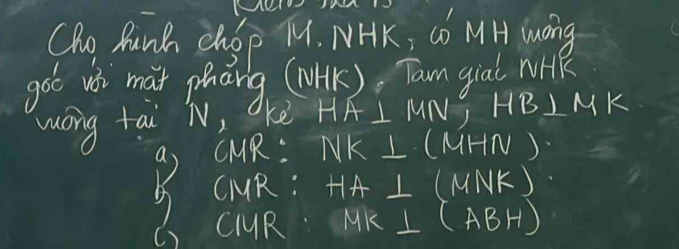 Cho hình chóp M.NHK, có MH vuông
góc với mặt phẳng (NHK). Tam giác NHK
vuông tại N, kẻ HA ⊥ MN, HB ⊥ MK
a) CMR: NK ⊥ (MHN).
b) CMR: HA ⊥ (MNK).
c) CMR: MK ⊥ (ABH)